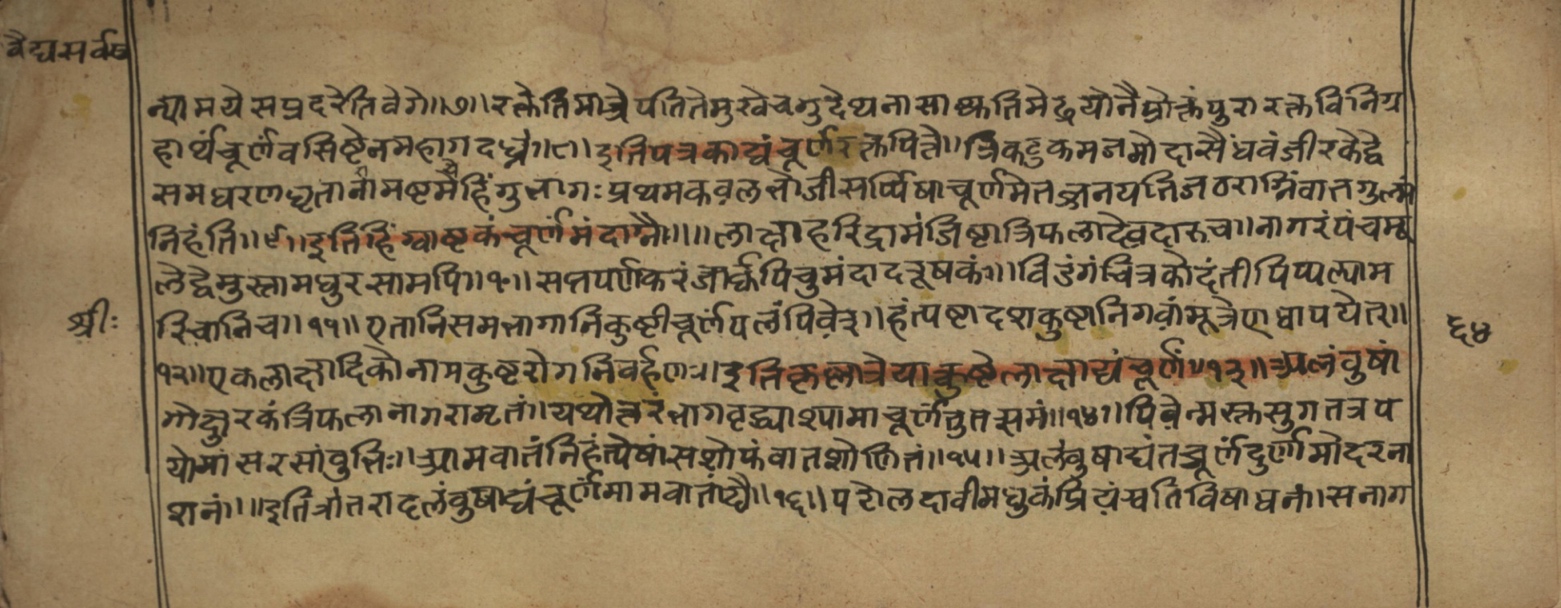 वैद्यसर्वस्व
न्यामये सप्रदरेतिवेगे॥७॥ रक्तेतिमात्रे पतिते मुखेच गुदेथनासाष्कतिमेढ्रयोनै प्रोक्तं पुरा रक्तेविनिग्र
हार्थं चूर्णं वसिष्टेनमहागदघ्नं॥८॥ इतिपत्रकाद्यं चूर्णरक्तपित्ते॥ त्रिकटुकमजमोदासैंधवंजीरकेद्वे
समधरणधृतानामष्टमैहिंगुभागः प्रथमकवलभोजीसर्प्पिषाचूर्णमेतज्जनयतिजठराग्निंवातगुल्मं
निहंति॥९॥ इतिहिंग्वाष्टकं चूर्णं मंदाग्नौ॥॥ लाक्षाहरिद्रामंजिष्टात्रिफलादेवदारुच॥ नागरंपंचमू
लेद्वेमुस्तामधुरसामपि॥१०॥ सप्तपर्णकरंजार्कपिचुमंदादरूषकं॥ विडंगंचित्रकोदंतीपिप्पल्याम
रिचानिच॥११॥ एतानिसमभागानिकुष्टीचूर्णपलंपिबेत्॥ हंत्यष्टादशकुष्टानिगवांमूत्रेणधापयेत्॥
श्रीः
६४
१२॥ एकलाक्षादिकोनामकुष्टरोगनिवर्हणः॥ इतिकृष्णात्रेयाकुष्टेलाक्षाद्यं चूर्णं॥१३॥ अलंवुषां
गोक्षुरकंत्रिफलानागरामृतं॥ यथोत्तरंभागवृद्ध्याश्यामाचूर्णंतुतत्समं॥१४॥ पिबेन्मस्तसुगतत्रप
योमांसरसांवुभिः॥ आमवातंनिहंत्येषांसशोफंवातशोणितं॥१५॥ अलंवुषाद्यंतच्चूर्णंदुर्णामोदरना
शनं॥॥ इतित्रोतरादलंवुषाद्यंचूर्णमामवातादौ॥१६॥ पटोलदार्वीमधुकंप्रियंग्वतिविषाघनं॥ सनाग